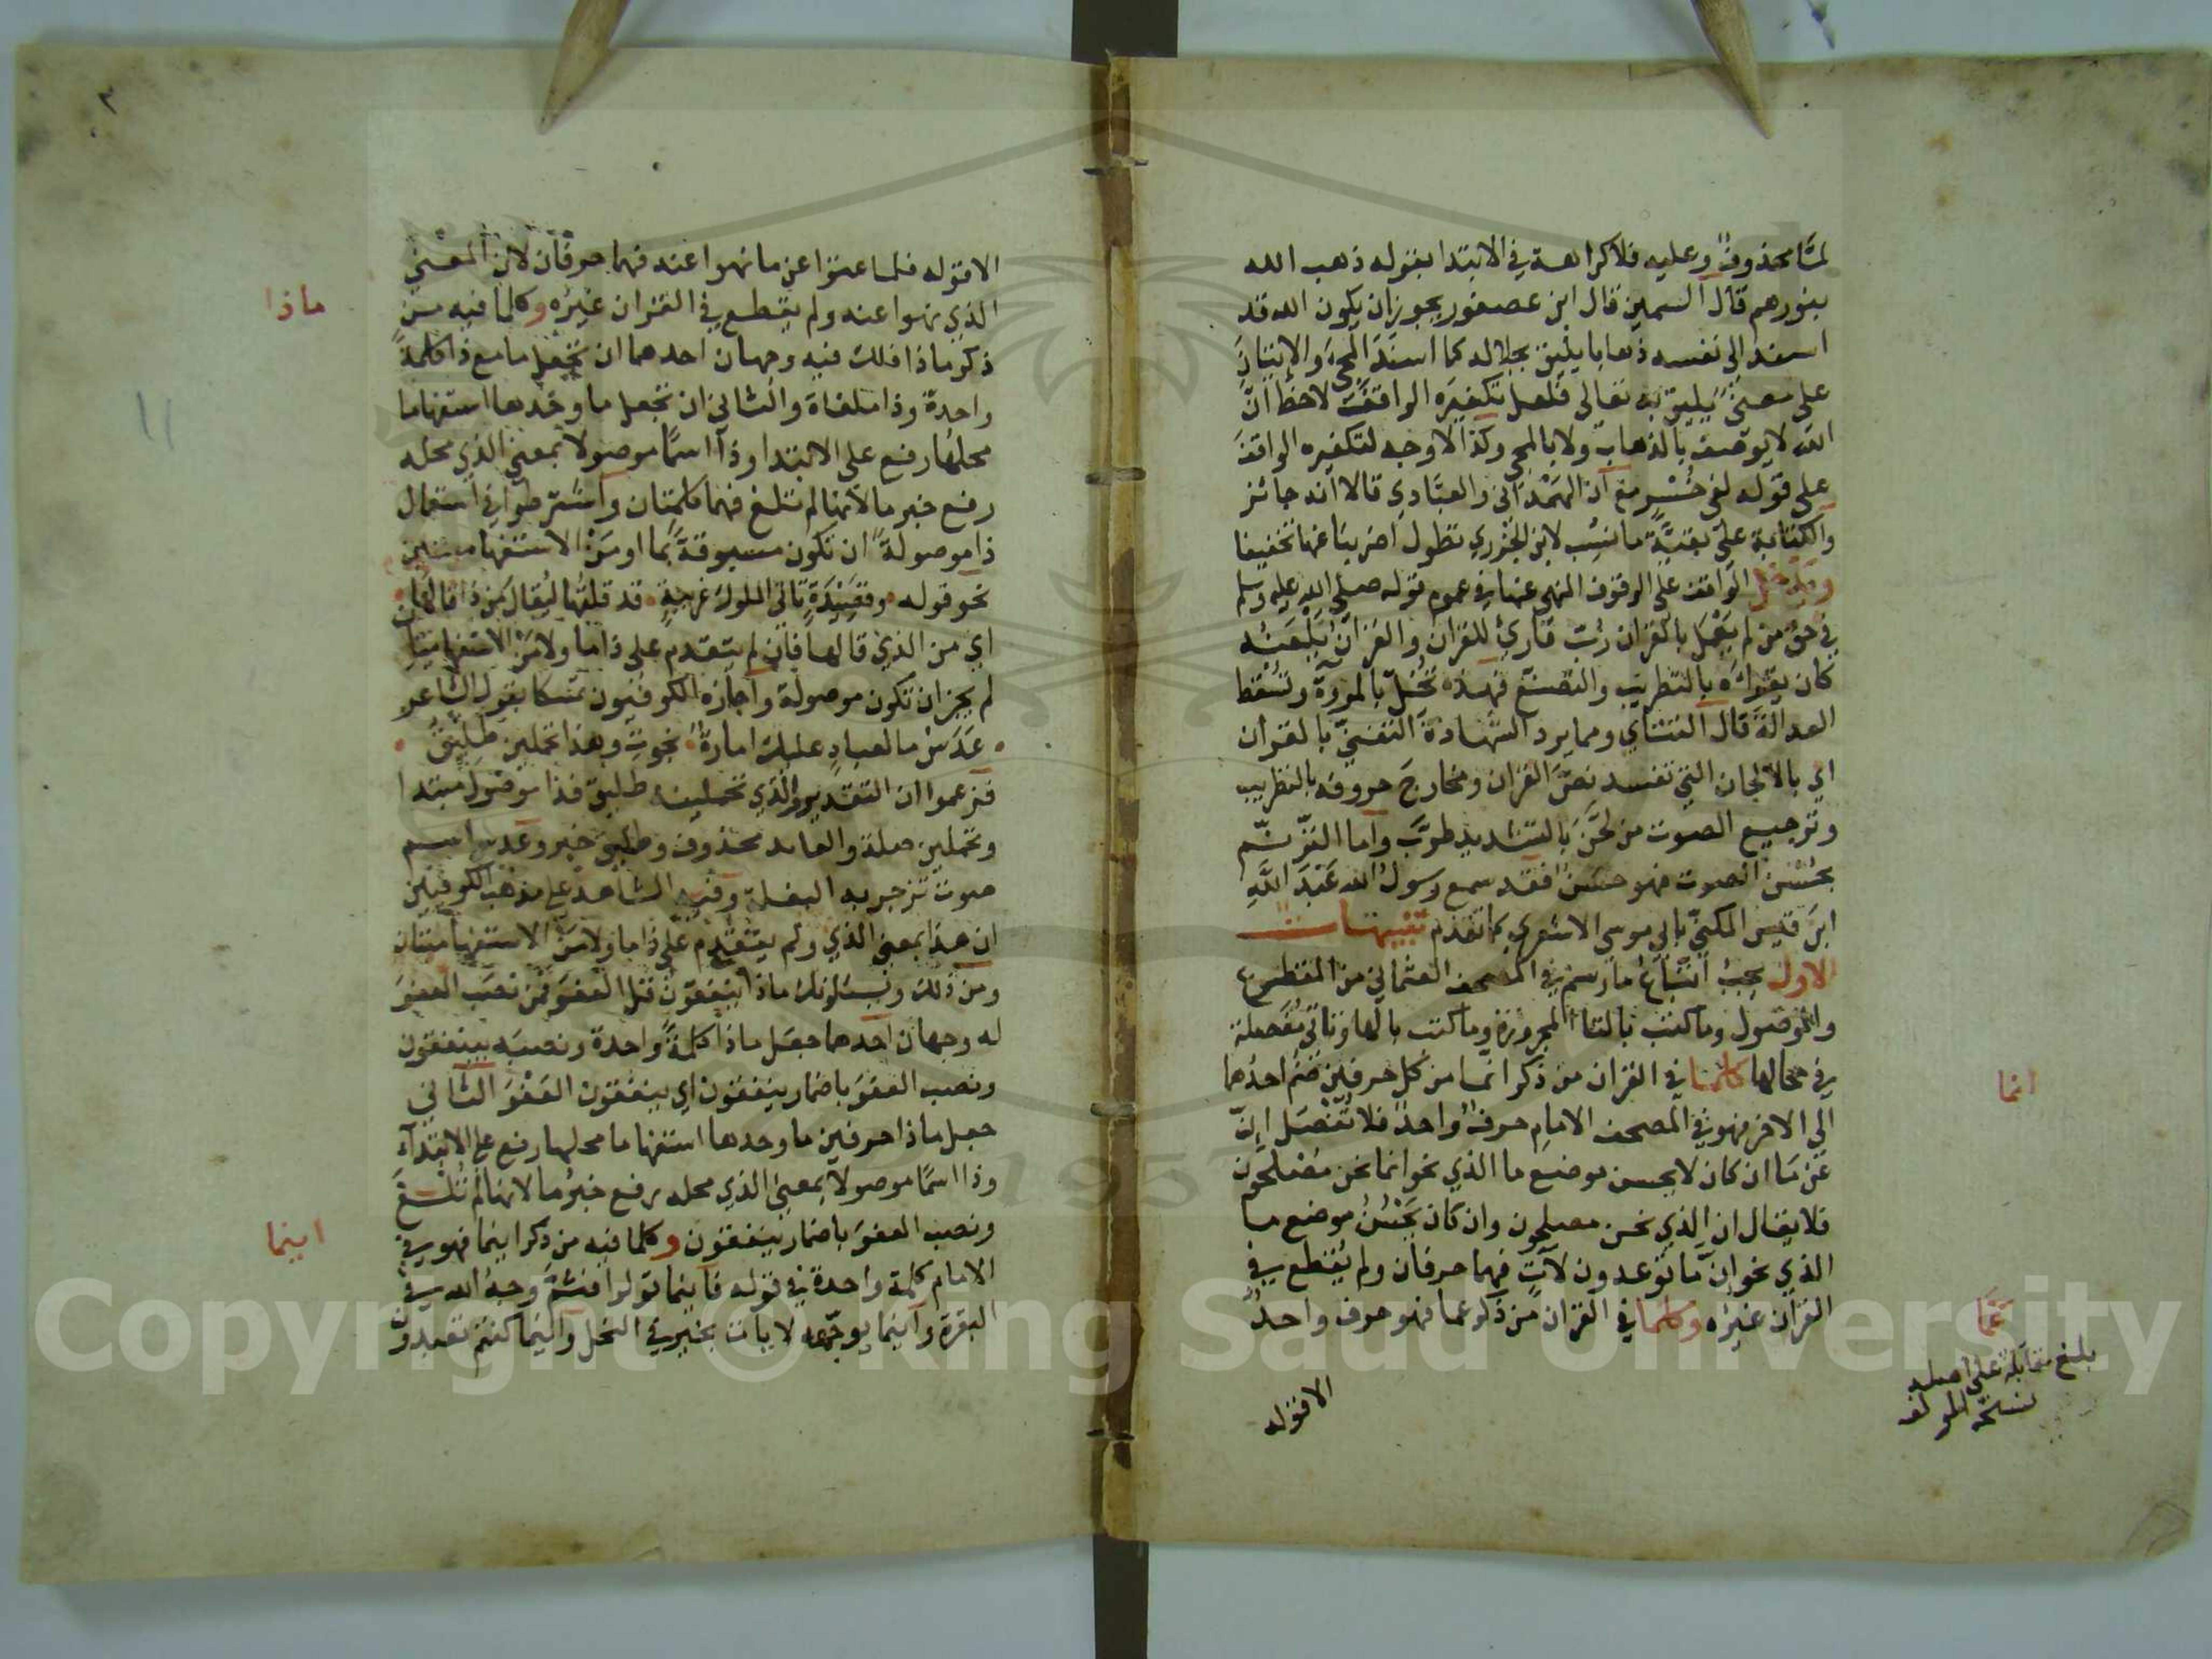 لمَّا محذوفٌ وعليه فلا كراهة في الابتدا بقوله ذهب الله
بنورهم قال السمين قال ابن عصفور يجوز ان يكون الله قد
اسند الى نفسه ذهابا يليق بجلاله كما اسنَدَ المجيَ والإتيانَ
على معنى يليق به تعالى فلعل تكفيرَه الواقفَ لاحظ انّ
الله لا يوصف بالذهاب ولا بالمجي وكذا لا وجه لتكفيره الواقفَ
على قوله لفي خُسْرٍ مع ان الهمَذاني والعبّادي قالا انه جائز
والكتابة على بقيَّة ما نسِب لابن الجزري تطول اضربنا عنها تخفيفا
ويدخل الواقف على الوقوف المنهي عنها في عموم قوله صلى الله عليه وسلم
في حق من لم يعمل بالقران رُبّ قارئ للقران والقرانُ يَلْعَنُه
كان يقرأه بالتطريب والتصنّع فهذه تُخِلّ بالمروّة وتُسْقط
العدالة قال التتائي ومما يرد الشهادة التغنيّ بالقران
اي بالالحان التي تفسد نصَّ القران ومخارجَ حروفه بالتطريب
وترجيع الصوت من لحَّنَ بالتشديد طرَّب وأما الترنّم
بحُسْن الصوت فهو حسَنٌ فقد سمع رسول الله عبْدَ اللَّهِ
ابنَ قيس المكنيّ بابي موسى الاشعري كما تقدم تنبيهات
الاول يجب اتّباعُ ما رسم في المصحف العثماني من المقطوع
والموصول وما كتب بالتاء المجرورة وما كتب بالها وتأتي مفصلة
في محالها كلما في القران من ذكر انما من كل حرفين ضُم احدُهما
الى الاخر فهو في المصحف الامام حرفٌ واحد فلا تُفْصَل إنّ
عن مَا ان كان لا يحسن موضع ما الذي نحو انما نحن مصلحون
فلا يقال ان الذي نحن مصلحون وان كان يَحْسُنُ موضع ما
الذي نحو إنّ ما توعدون لآتٍ فهما حرفان ولم يُقطع في
القران غيرُه وكلما في القران من ذكر عما فهو حرف واحدٌ
الا قوله
انما
عَمَّا
بلغ مقابلة على اصله
نسخة المولف
٣
الا قوله فلما عتوا عن ما نهوا عنه فهما حرفان لان المعنى
الذي نهوا عنه ولم يقطع في القران غيرُه وكلما فيه من
ذكر ماذا فلك فيه وجهان احدهما ان تجعل ما مع ذا كلمةً
واحدةً وذا ملغاة والثاني ان تجعل ما وحْدها استفهاما
محلها رفع على الابتدا وذا اسمًا موصولا بمعنى الذي محله
رفع خبر ما لانها لم تلغ فهما كلمتان واشترطوا في استعمال
ذا موصولةً ان تكون مسبوقةً بمَا او مَنْ الاستفهاميتين
نحو قوله وقصِيْدَةٍ تأتي الملوك غريبةٍ قد قلتُها ليُقال مَن ذا قالها
اي من الذي قالها فان لم يتقدم على ذا ما ولا مَن الاستفهاميتان
لم يجز ان تكون موصولة واجازه الكوفيون تمسكا بقول الشاعر
عَدَسْ ما لعبادٍ عليك امارةٌ نجوتِ وهذا تحملين طليقُ
فزعموا ان التقدير والذي تحملينه طليق فذا موصول مبتدا
وتحملين صلة والعائد محذوف وطليق خبر وعدس اسم
صوت تزجر به البغلة وفيه الشاهد على مذهب الكوفيين
ان هذا بمعنى الذي ولم يتقدم على ذا ما ولا من الاستفهاميتان
ومن ذلك ويسئلونك ماذا ينفقون قل العفوَ فمن نصبَ العفوَ
له وجهان احدهما جعل ماذا كلمةً واحدة ونصبَه بينفقون
ونصب العفوَ باضمار ينفقون اي ينفقون العَفْوَ الثاني
جعل ماذا حرفين ما وحدها استفهاما محلها رفع على الابتدآء
وذا اسمًا موصولا بمعنى الذي محله رفع خبرُ ما لانها لم تُلْغَ
ونصب العفوَ باضمار ينفقون وكلما فيه من ذكر اينما فهو في
الامام كلمة واحدة في قوله فاينما تولوا فثَمَّ وجهُ الله في
البقرة وأينما يوجّهه لا يات بخير في النحل واينما كنتم تعبدون
ماذا
اينما
Copyright © King Saud University
1957